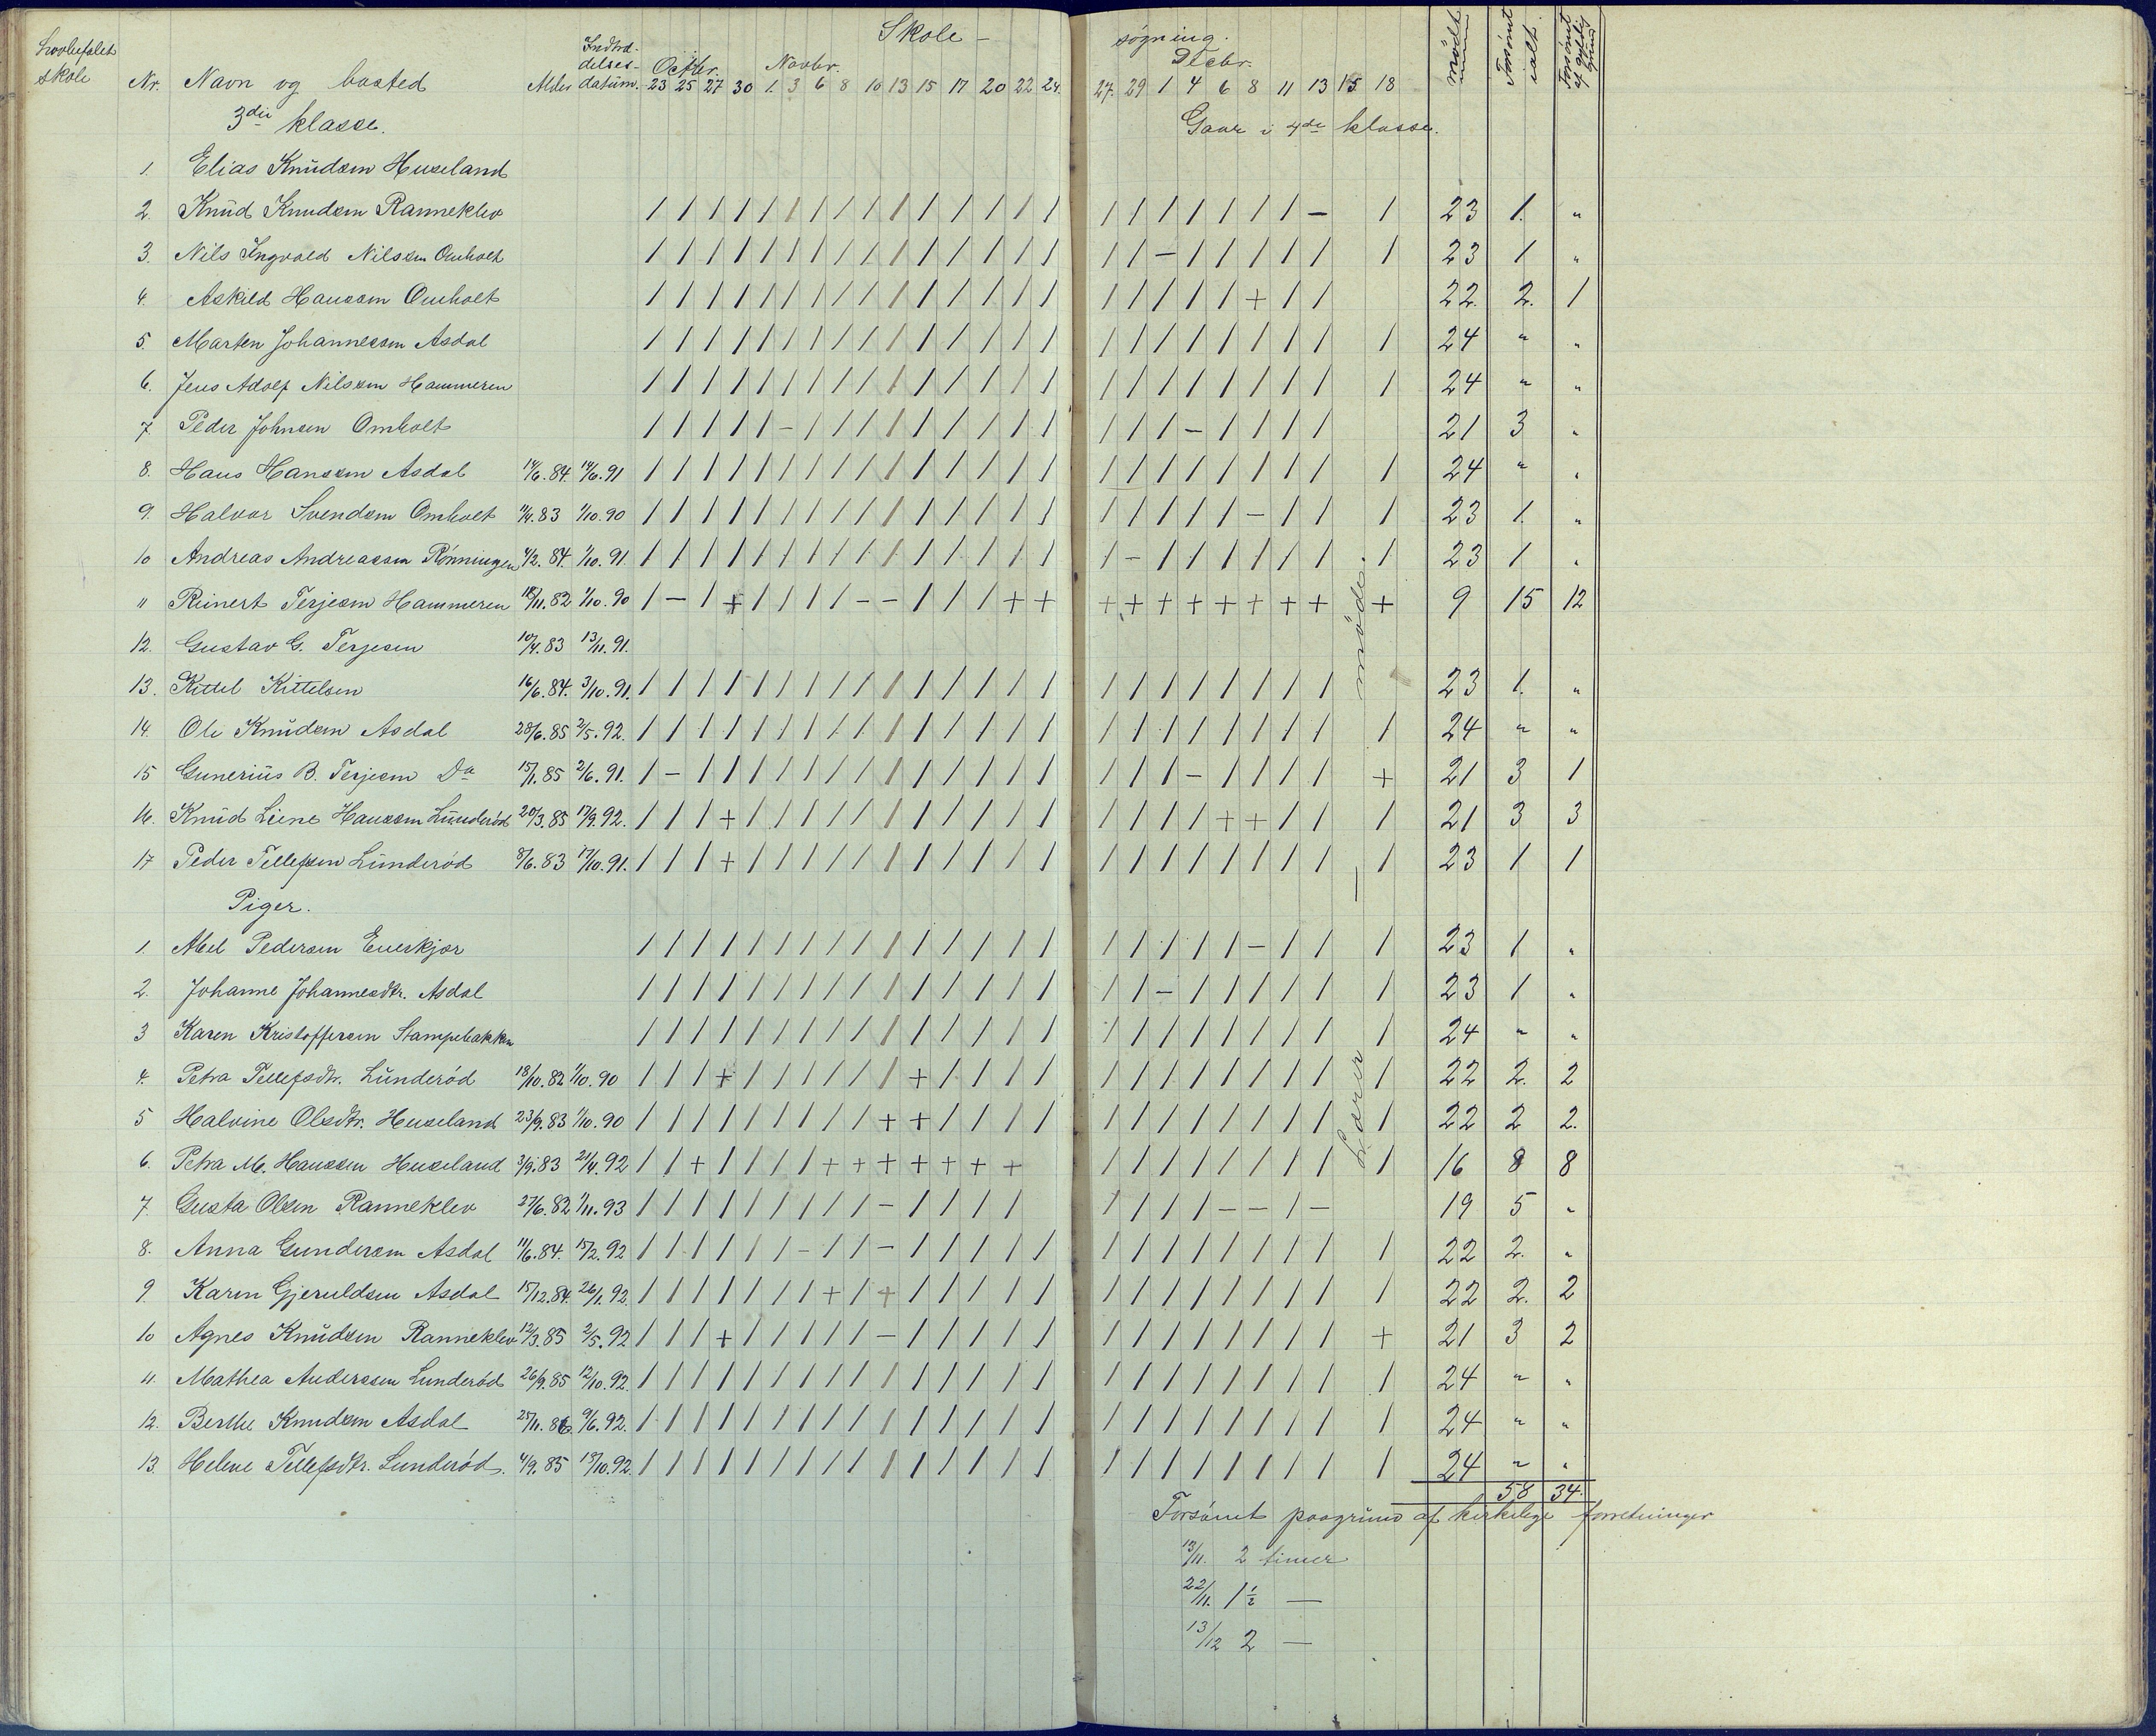 Skole-søgning.
Lovbefalet skole
Nr. Navn og bosted Alder Indtrædelsesdatum. Octbr. 23 25 27 30 Novbr. 1 3 6 8 10 13 15 17 20 22 24. 27. 29 Decbr. 1 4 6 8 11 13 15 18 mödt Forsömt ialt. Forsömt af gyldig grund
3die klasse.
1. Elias Knudsen Huseland Gaar i 4de klasse.
2. Knud Knudsen Ranneklev / / / / / / / / / / / / / / / / / / / / / / – / 23 1. "
3. Nils Ingvald Nilssen Omholt / / / / / / / / / / / / / / / / / – / / / / / / 23 1 "
4. Askild Hanssen Omholt / / / / / / / / / / / / / / / / / / / / + / / 22. 2. 1
5. Marten Johannessen Asdal / / / / / / / / / / / / / / / / / / / / / / / / 24 " "
6. Jens Adolf Nilssen Hammeren / / / / / / / / / / / / / / / / / / / / / / / / 24 " "
7. Peder Johnsen Omholt / / / / / – / / / / / / / / / / / / – / / / / 21 3 "
8. Hans Hanssen Asdal 14/6.84. 14/6.91 / / / / / / / / / / / / / / / / / / / / / / / / 24 " "
9. Halvor Svendsen Omholt 4/4.83 1/10.90 / / / / / / / / / / / / / / / / / / / / – / / / 23 1. "
10 Andreas Andreassen Rönningen 4/2.84. 1/10.91. / / / / / / / / / / / / / / / / – / / / / / / / 23 1 "
11 Reinert Terjesen Hammeren 18/11.82 1/10.90 / – / + / / / / – – / / / + + + + + + + + + + + 9 15 12
12. Gustav G. Terjesen 10/4.83 13/11.91.
13. Kittel Kittelsen 16/6.84. 3/10.91. / / / / / / / / / / / / / / / / / / / / / / / 23 1. "
14. Ole Knudsen Asdal 28/6.85 2/5.92. / / / / / / / / / / / / / / / / / / / / / / / / 24 " "
15 Gunerius B. Terjesen Do 15/1.85 2/6.91. / – / / / / / / / / / / / / / / / / – / / / / + 21 3 1
16. Knud Leine Hanssen Lunderöd 20/3.85 17/9.92. / / / + / / / / / / / / / / / / / / / + + / / / 21 3 3
17 Peder Tellefsen Lunderöd 8/6.83 17/10.91. / / / + / / / / / / / / / / / / / / / / / / / / 23 1 1
Piger.
1. Abel Pedersen Enerkjær / / / / / / / / / / / / / / / / / / / / – / / / 23 1 "
2. Johanne Johannesdtr. Asdal / / / / / / / / / / / / / / / / / – / / / / / / 23 1 "
3 Karen Kristoffersen Stampebakken / / / / / / / / / / / / / / / / / / / / / / / / 24 " "
4. Petra Tellefsdtr. Lunderöd 18/10.82 1/10.90 / / / + / / / / / / + / / / / / / / / / / / / / 22 2. 2
5 Halvine Olsdtr. Huseland 23/9.83 1/10.90 / / / / / / / / / + + / / / / / / / / / / / / / 22 2 2.
6. Petra M. Hanssen Huseland 3/9.83 21/4.92 / / + / / / / + + + + + + + / / / / / / / / / 16 8 8
7. Gusta Olsen Ranneklev 27/6.82 1/11.93 / / / / / / / / / – / / / / / / / / – – / – 19 5 "
8. Anna Gundersen Asdal 11/6.84. 15/2.92 / / / / / / – / / – / / / / / / / / / / / / / / 22 2. "
9. Karen Gjeruldsen Asdal 15/12.84. 26/1.92. / / / / / / / + / + / / / / / / / / / / / / / / 22 2. 2
10 Agnes Knudsen Ranneklev 12/3.85 2/5.92 / / / + / / / / / – / / / / / / / / / / / / / + 21 3 2
11. Mathea Anderssen Lunderöd 26/9.85 12/10.92. / / / / / / / / / / / / / / / / / / / / / / / / 24 " "
12. Berthe Knudsen Asdal 25/11.86. 9/6.92. / / / / / / / / / / / / / / / / / / / / / / / / 24 " "
13. Helene Tellefsdtr. Lunderöd. 4/9.85 13/10.92. / / / / / / / / / / / / / / / / / / / / / / / / 24 " "
58 34.
Lærermöde.
Forsömt paagrund af kirkelige forretninger
13/11. 2 timer
22/11. 1 1/2 —
13/12 2 —